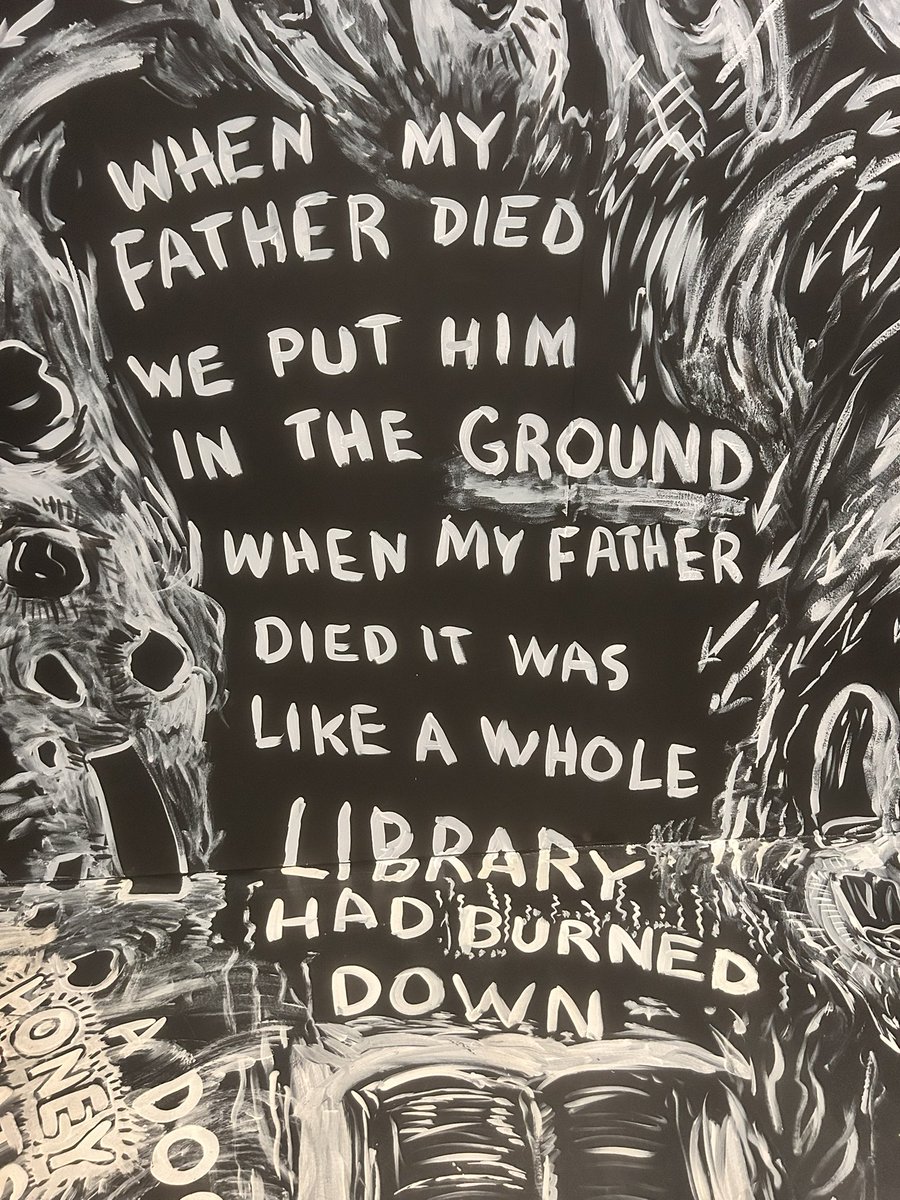 WHEN MY
FATHER DIED
WE PUT HIM
IN THE GROUND
WHEN MY FATHER
DIED IT WAS
LIKE A WHOLE
LIBRARY
HAD BURNED
DOWN
HONEY
A DO